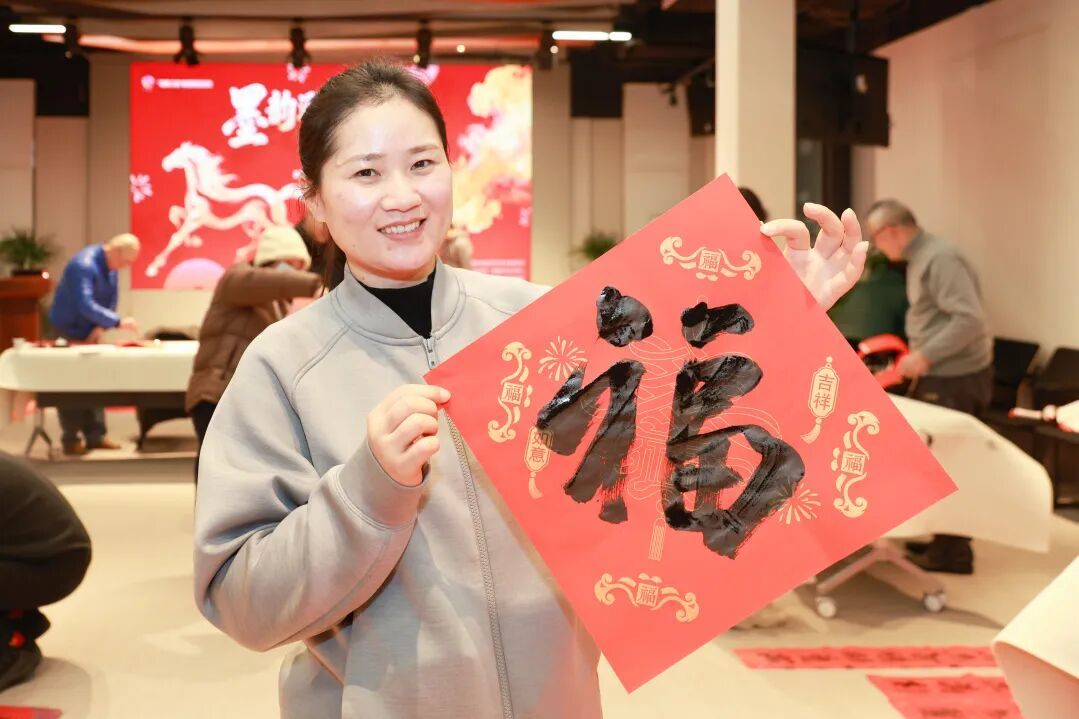 墨韵
福
福
福
如意
吉祥
福
福